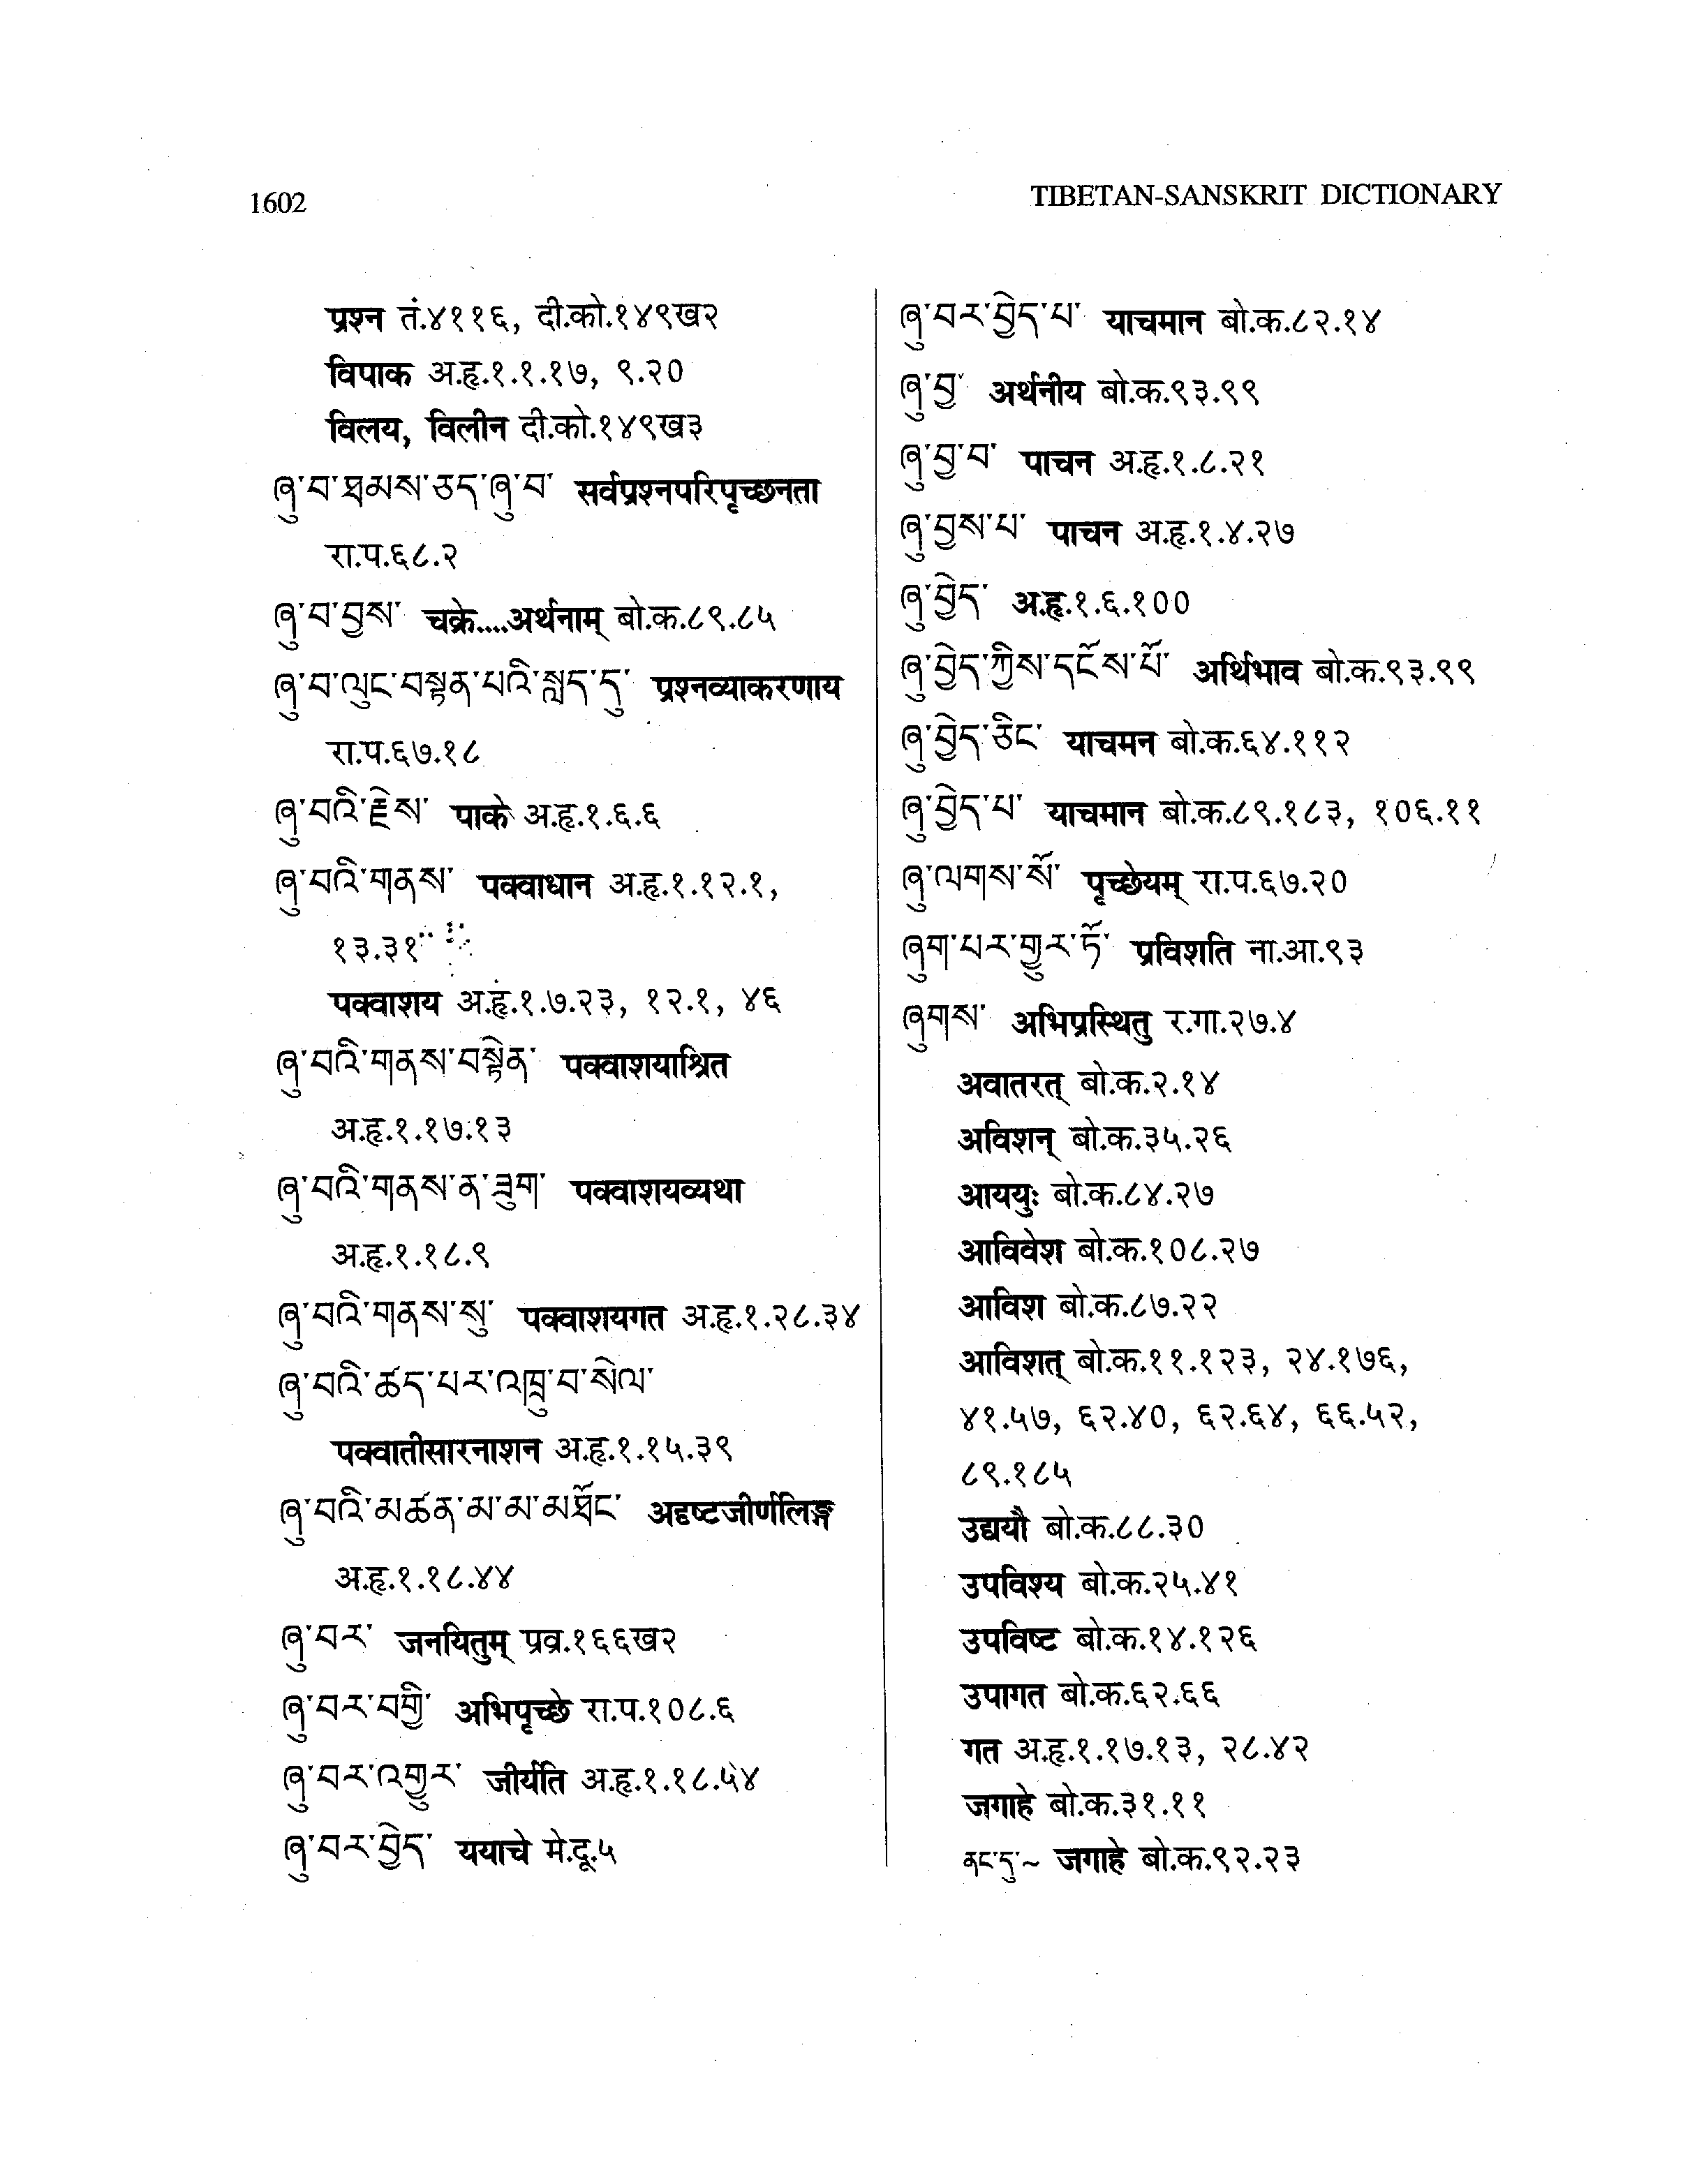 1602
TIBETAN-SANSKRIT DICTIONARY
प्रश्न तं.४११६, दी.को.१४९ख२
विपाक अ.हृ.१.१.१७, ९.२०
विलय, विलीन दी.को.१४९ख३
ཞུ་བ་ཐམས་ཅད་ཞུ་བ་ सर्वप्रश्नपरिपृच्छनता
रा.प.६८.२
ཞུ་བ་བྱས་ चक्रे....अर्थनाम् बो.क.८९.८५
ཞུ་བ་ལུང་བསྟན་པའི་སླད་དུ་ प्रश्नव्याकरणाय
रा.प.६७.१८
ཞུ་བའི་རྗེས་ पाके अ.हृ.१.६.६
ཞུ་བའི་གནས་ पक्वाधान अ.हृ.१.१२.१,
१३.३१
पक्वाशय अ.हृ.१.७.२३, १२.१, ४६
ཞུ་བའི་གནས་བསྟེན་ पक्वाशयाश्रित
अ.हृ.१.१७.१३
ཞུ་བའི་གནས་ན་ཟུག་ पक्वाशयव्यथा
अ.हृ.१.१८.९
ཞུ་བའི་གནས་སུ་ पक्वाशयगत अ.हृ.१.२८.३४
ཞུ་བའི་ཚད་པར་འཁྲུ་བ་སེལ་
पक्वातीसारनाशन अ.हृ.१.१५.३९
ཞུ་བའི་མཚན་མ་མ་མཐོང་ अदृष्टजीर्णलिङ्ग
अ.हृ.१.१८.४४
ཞུ་བར་ जनयितुम् प्रव्र.१६६ख२
ཞུ་བར་བགྱི་ अभिपृच्छे रा.प.१०८.६
ཞུ་བར་འགྱུར་ जीर्यति अ.हृ.१.१८.५४
ཞུ་བར་བྱེད་ ययाचे मे.दू.५
ཞུ་བར་བྱེད་པ་ याचमान बो.क.८२.१४
ཞུ་བྱ་ अर्थनीय बो.क.९३.९९
ཞུ་བྱ་བ་ पाचन अ.हृ.१.८.२१
ཞུ་བྱས་པ་ पाचन अ.हृ.१.४.२७
ཞུ་བྱེད་ अ.हृ.१.६.१००
ཞུ་བྱེད་ཀྱིས་དངོས་པོ་ अर्थिभाव बो.क.९३.९९
ཞུ་བྱེད་ཅིང་ याचमन बो.क.६४.११२
ཞུ་བྱེད་པ་ याचमान बो.क.८९.१८३, १०६.११
ཞུ་ལགས་སོ་ पृच्छेयम् रा.प.६७.२०
ཞུག་པར་གྱུར་ཏོ་ प्रविशति ना.आ.९३
ཞུགས་ अभिप्रस्थितु र.गा.२७.४
अवातरत् बो.क.२.१४
अविशन् बो.क.३५.२६
आययुः बो.क.८४.२७
आविवेश बो.क.१०८.२७
आविश बो.क.८७.२२
आविशत् बो.क.११.१२३, २४.१७६,
४१.५७, ६२.४०, ६२.६४, ६६.५२,
८९.१८५
उद्ययौ बो.क.८८.३०
उपविश्य बो.क.२५.४१
उपविष्ट बो.क.१४.१२६
उपागत बो.क.६२.६६
गत अ.हृ.१.१७.१३, २८.४२
जगाहे बो.क.३१.११
ནང་དུ་~ जगाहे बो.क.९२.२३